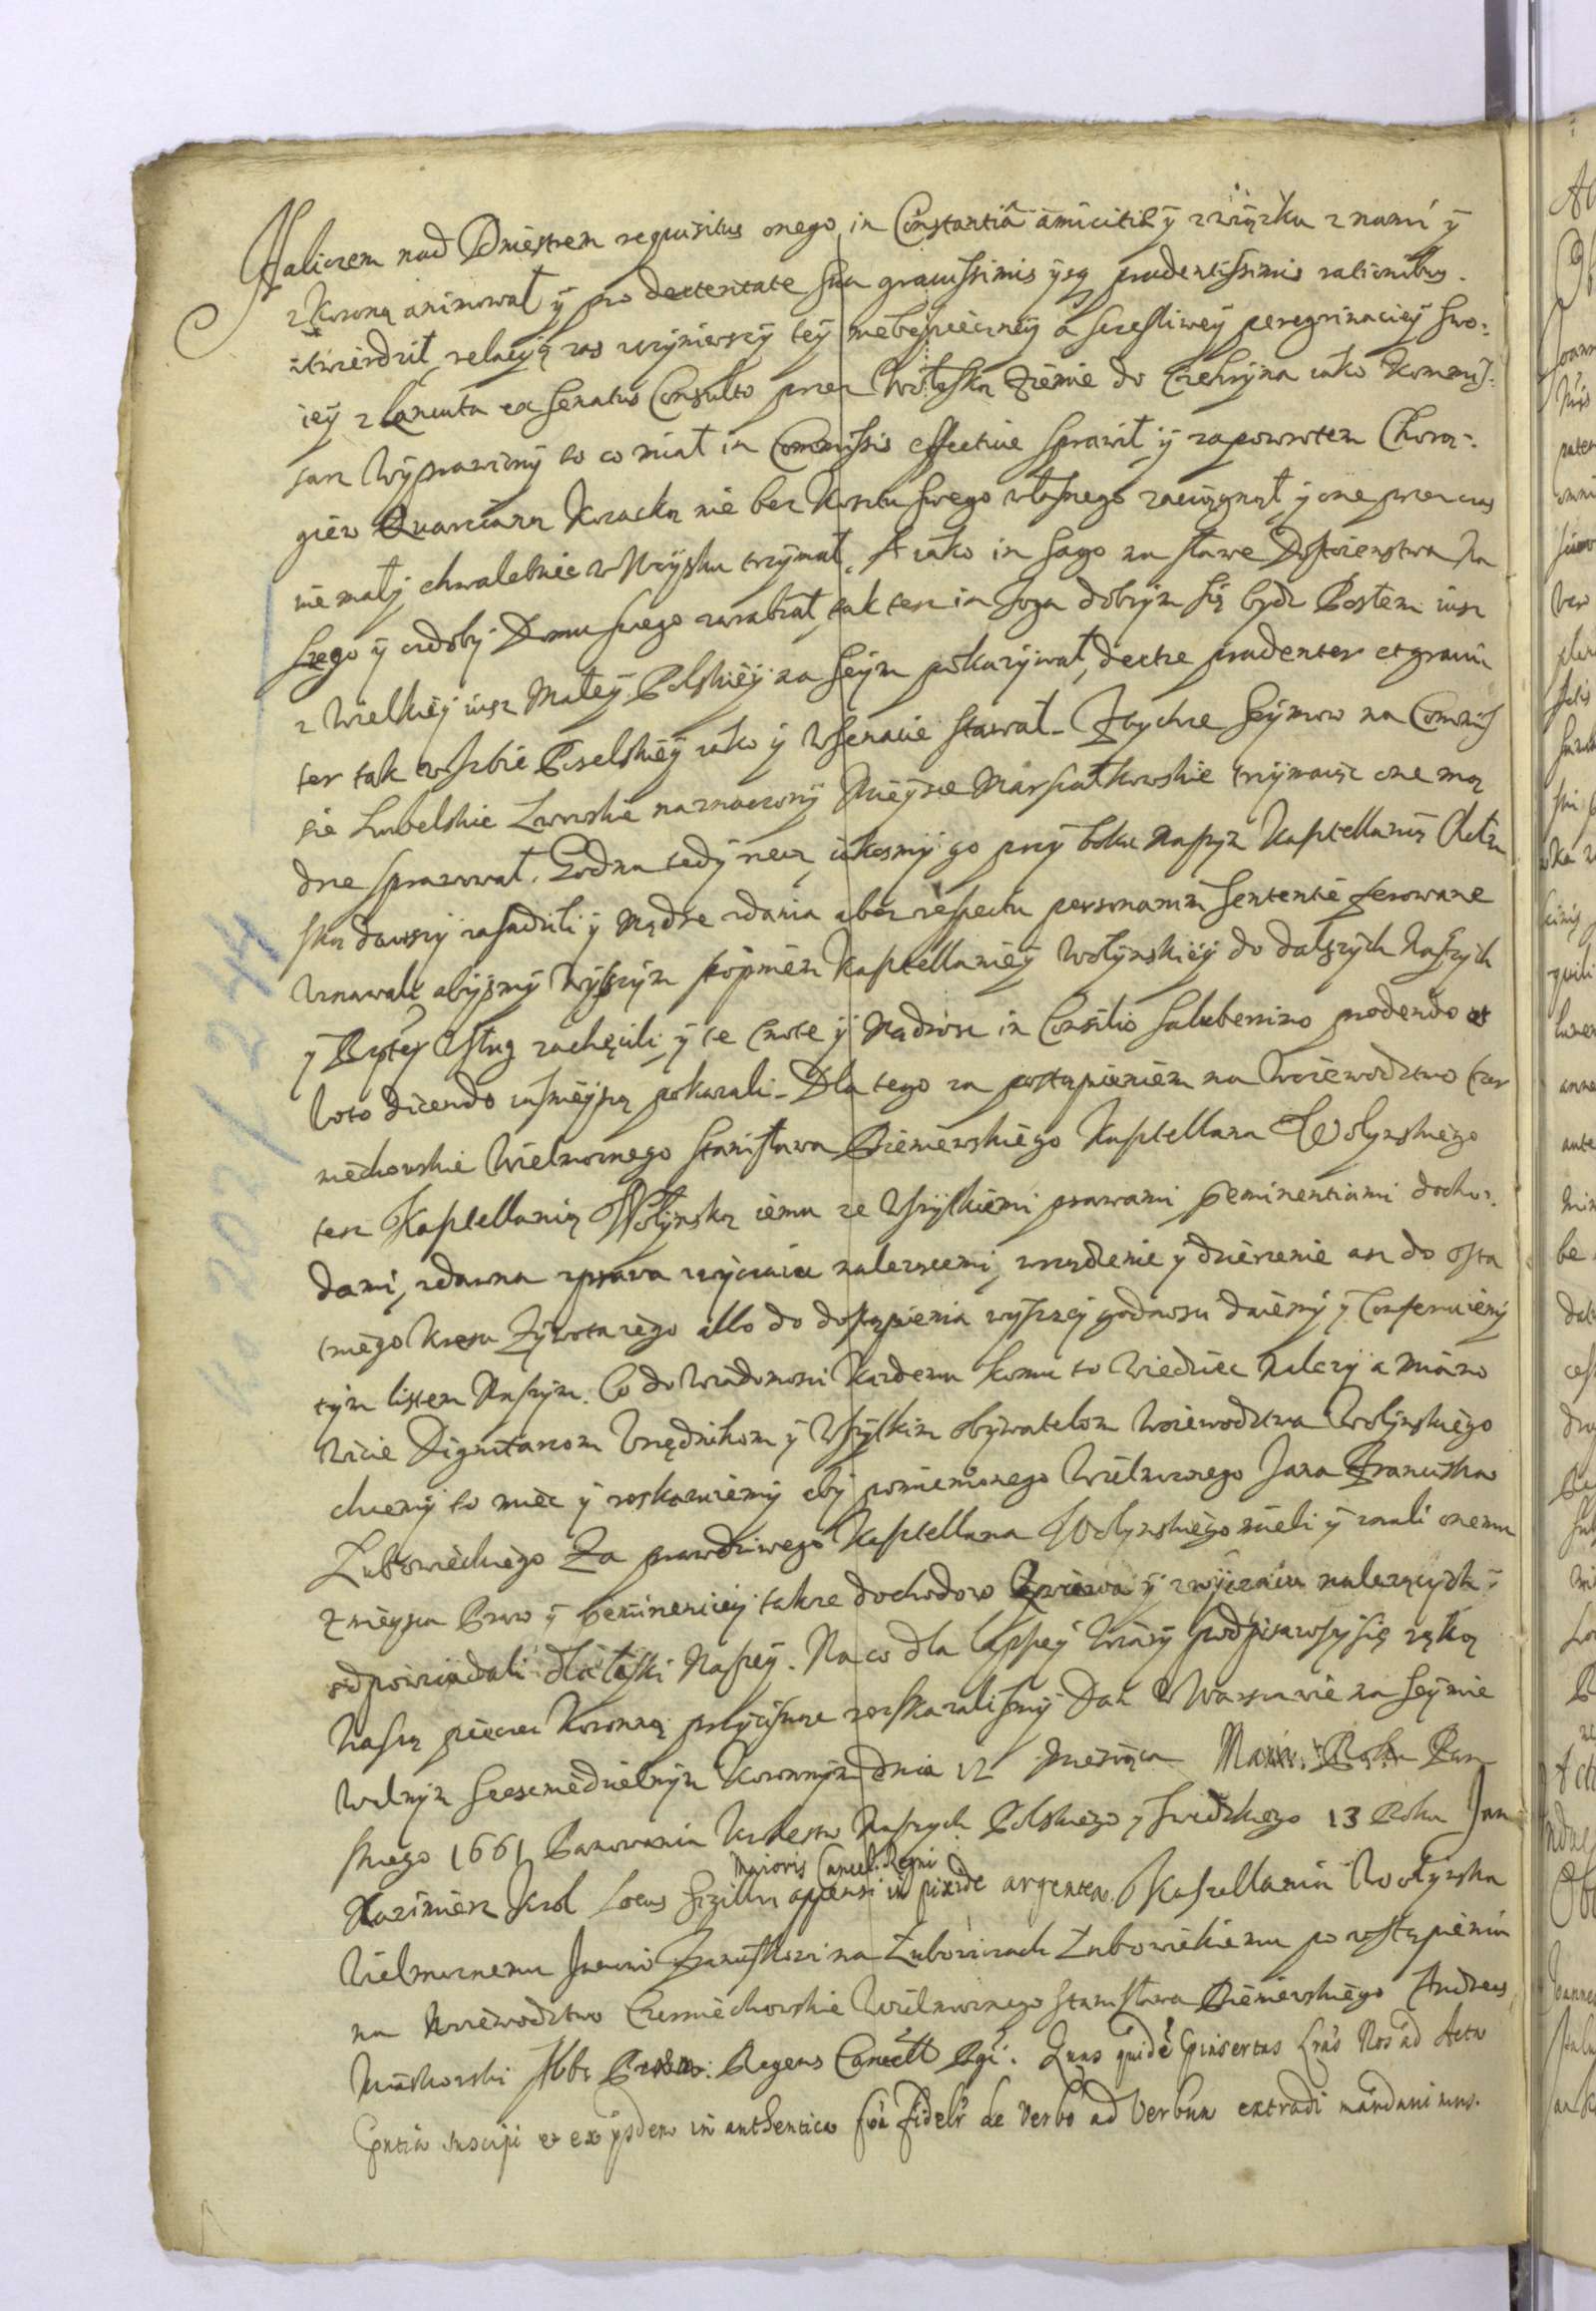 Haliczem nad Dniestrem requisitus onego in Constantiã amicitiæ ÿ związku z nami ÿ
z Koroną animował ÿ pro dexteritate sua gravissimis ÿsq prudentissimis rationibus.
utwierdził, relacyą zas uczyniwszÿ teÿ niebespieczneÿ a sczesliweÿ peregrinacieÿ swo:
ieÿ z Lancuta ex Senatus Consulto przez Wołoską Ziemie do Czehryna iako Kommis:
sarz Wyprawiony to co miał in Commissis effective sprawił, ÿ zapowrotem Chorą:
giew Quarcianą Kozacką nie bez Kosztu swego własnego zaciągnął, ÿ one przez czas
niemałÿ chwalebnie w Woysku trzÿmał, A iako in Sago na sławe Dostoienstwa Na
szego ÿ ozdobÿ Domu swego zarabiał, tak tesz in Toga dobrÿm się bydz Posłem iusz
z Wielkieÿ iusz Małeÿ Polskieÿ na Seÿm pokazÿwał, dextre prudenter et gravi
ter tak w Izbie Poselskieÿ iako ÿ W Senacie stawał. Zbytche Seÿmow na Commis
sie Lubelskie Lwowskie naznaczonÿ Mieÿsce Marszałkowskie trzÿmaiąc one mą
drze sprawował. Godna tedÿ rzecz, iakosmÿ go przÿ boku Naszÿm Kasztellanią
ską dawszÿ zasadzili ÿ Mądre zdania abez respectu personarum Sententie ferowane
Uznawali, abÿsmÿ Wÿszÿm stopniem Kasztellanieÿ Wołÿnskieÿ do dalszÿch Naszÿch
ÿ Rzptey Usług zachęcili, ÿ te Cnote ÿ Mądrosc in Consilio saluberrimo prodendo et
Voto dicendo iasnieÿszą pokazali. Dla tego za postąpieniem na Woiewodztwo Czer
niechowskie Wielmoznego Stanisława Bieniewskiego Kasztellana Wołynskiego
tesz Kasztellanią Wołÿnską iemu ze Wszÿtkiemi prawami peeminentiami docho:
dami, zdawna zprawa zwÿczaiu nalezącemi, wrzędzenie ÿ dzierzenie asz do osta
tniego Kresu Zÿwota iego albo do dostąpienia wÿszszeÿ godnosci daiemÿ ÿ Conferuiemÿ
tÿm listem Naszÿm. Co do Wiadomosci Kazdemu komu to Wiedziec nalezÿ a miano
wicie Dignitarzom Urzędnikom ÿ Wszÿtkim obÿwatelom Woiewodztwa Wołÿnskiego
chcemÿ to miec ÿ roskazuiemÿ abÿ pomienionego Wielmoznego Jana Franciszka
Lubowieckiego Za prawdziwego Kasztellana Wołynskiego mieli ÿ znali onemu
Z mieÿsca Praw ÿ peeminencieÿ takze dochodow Zprawa ÿ zwÿczaiu nalezącÿch
odpowiadali dla łaski Naszeÿ. Na co dla lepszeÿ Wiarÿ podpisawszÿ się ręką
Naszą pieczec Koronną przÿcisnąc roskazalismÿ Dan W Warszawie na Seÿmie
Walnÿm szescniedzielnÿm Koronnÿm dnia 12 Miesiąca Roku Pan
skiego 1661 Panowania Krolestw Naszych Polskiego ÿ Swedzkiego 13 Roku Jan
Kazimierz Krol Locus Sigilli
Maioris Cancel. Regni
appensi in pixide argentea. Kasztellania Wołynska
Wielmoznemu Janowi Franciszkowi na Lubowcach Lubowickiemu po postąpieniu
na Woiewodztwo Czerniechowskie Wielmoznego Stanisława Bieniewskiego Andreas
Miaskowski Abbs Regens Cancell Rgi. Quas quidẽ pinsertas Lrãs Nos ad Acta
pntia suscipi et ex ÿsdem in authentica fõa fidelr de Verbo ad Verbum extradi mandavimus.
No 202/244